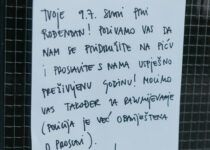 Tvoje 9.7. SLAVI PRVI
ROĐENDAN! POZIVAMO VAS DA
NAM SE PRIDRUŽITE NA PIĆU
I PROSLAVITE S NAMA USPJEŠNO
PREŽIVLJENU GODINU! MOLIMO
VAS TAKOĐER ZA RAZUMIJEVANJE
(POLICIJA JE VEĆ OBAVIJEŠTENA
O PROSLAVI).